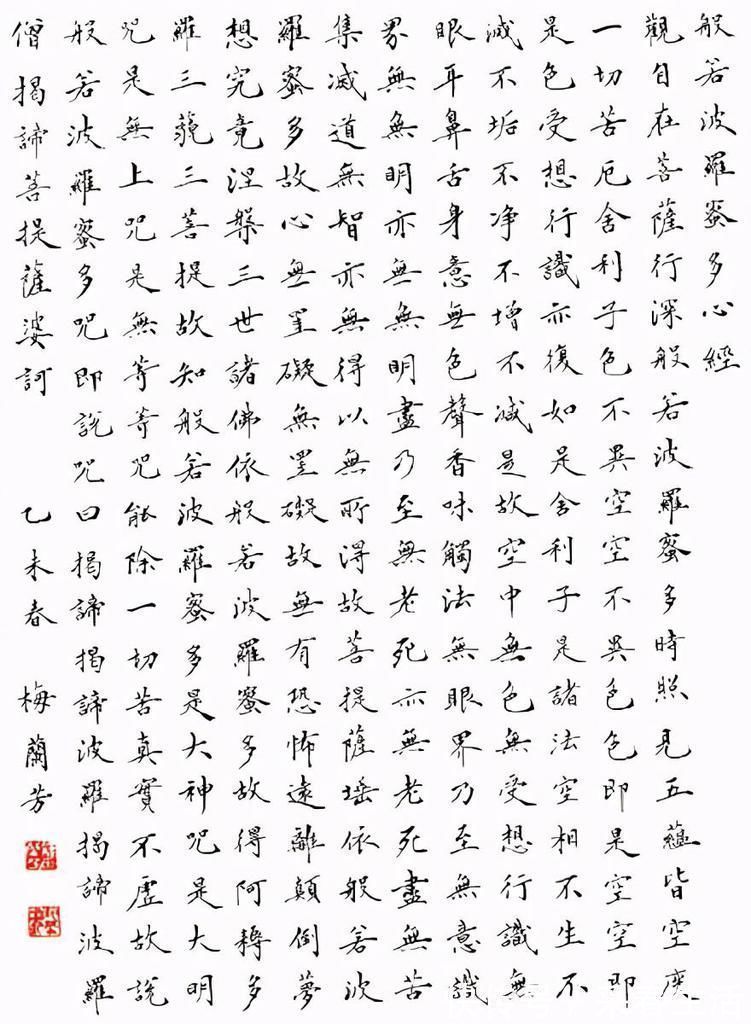 般若波羅蜜多心經
觀自在菩薩行深般若波羅蜜多時照見五蘊皆空度
一切苦厄舍利子色不異空空不異色色即是空空即
是色受想行識亦復如是舍利子是諸法空相不生不
滅不垢不净不增不減是故空中無色無受想行識無
眼耳鼻舌身意無色聲香味觸法無眼界乃至無意識
界無無明亦無無明盡乃至無老死亦無老死盡無苦
集滅道無智亦無得以無所得故菩提薩埵依般若波
羅蜜多故心無罣礙無罣礙故無有恐怖遠離顛倒夢
想究竟涅槃三世諸佛依般若波羅蜜多故得阿耨多
羅三藐三菩提故知般若波羅蜜多是大神咒是大明
咒是無上咒是無等等咒能除一切苦真實不虛故說
般若波羅蜜多咒即說咒曰揭諦揭諦波羅揭諦波羅
僧揭諦菩提薩婆訶 乙未春 梅蘭芳